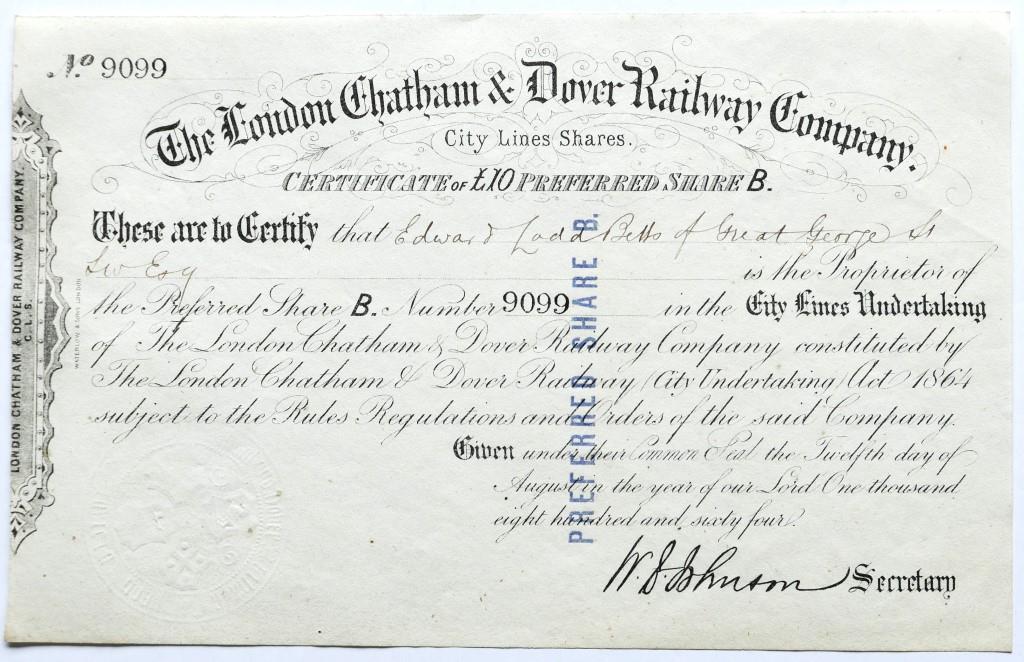 No. 9099
The London Chatham & Dover Railway Company.
City Lines Shares.
CERTIFICATE OF £10 PREFERRED SHARE B.
These are to Certify that Edward Ladd Betts of Great George St
SW Esq is the Proprietor of
the Preferred Share B. Number 9099 in the City Lines Undertaking
of The London Chatham & Dover Railway Company constituted by
The London Chatham & Dover Railway (City Undertaking) Act 1864
subject to the Rules Regulations and Orders of the said Company.
Given under their Common Seal the Twelfth day of
August in the year of our Lord One thousand
eight hundred and sixty four.
Secretary
PREFERRED SHARE B.
LONDON CHATHAM & DOVER RAILWAY COMPANY.
C.L.S.
WATERLOW & SONS LONDON
W. D. Johnson